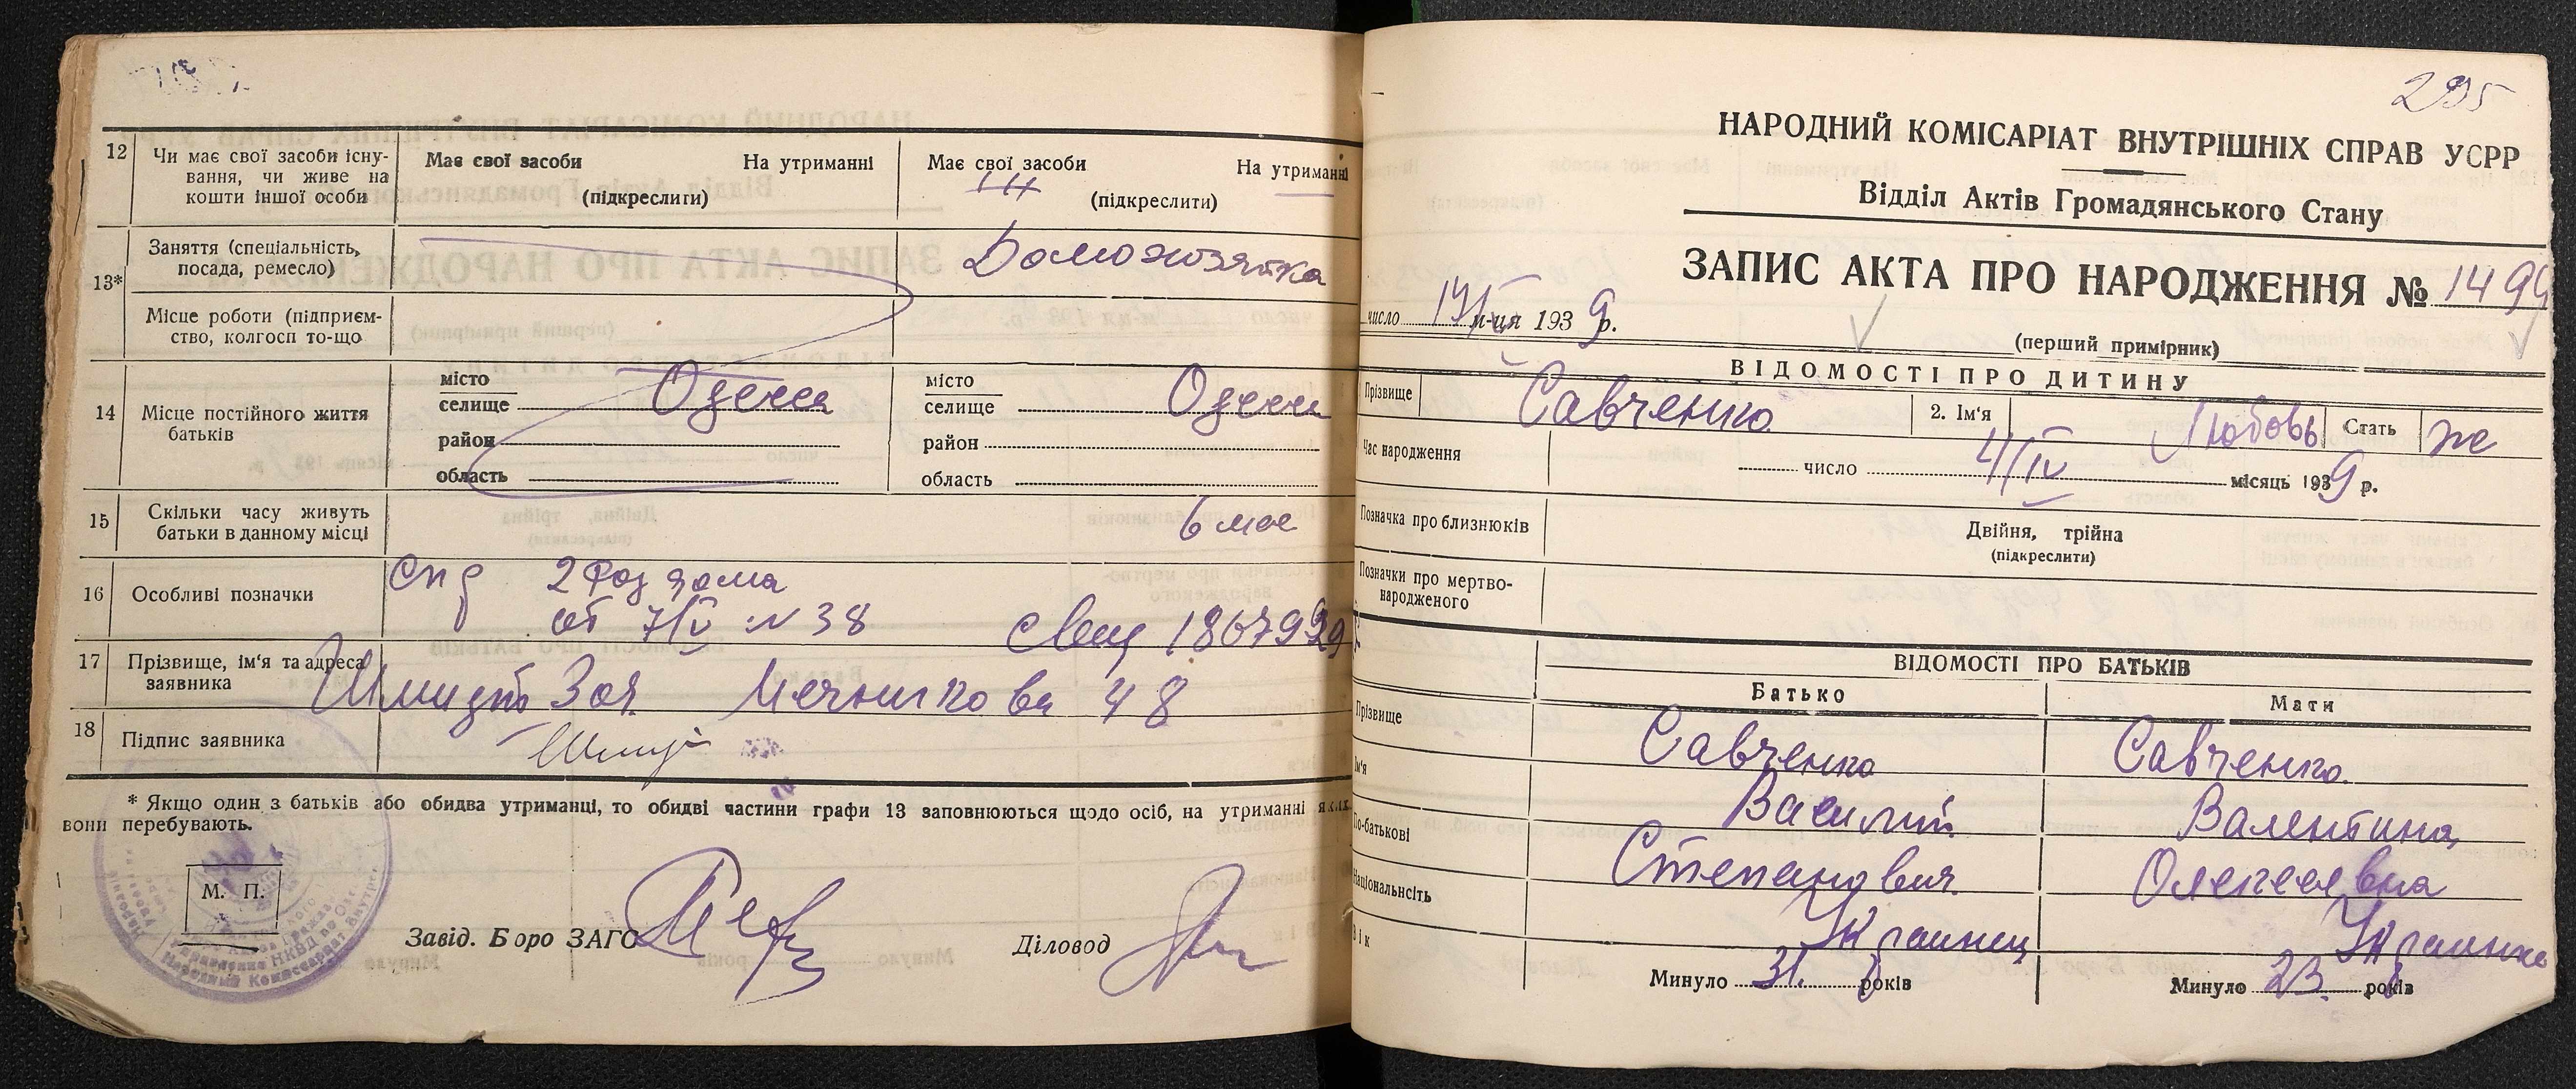 12 Чи має свої засоби існу-
вання, чи живе на
кошти іншої особи
Має свої засоби На утриманні
(підкреслити)
Має свої засоби На утриманні
(підкреслити)
13* Заняття (спеціальність,
посада, ремесло)
Домохозяйка
Місце роботи (підприєм-
ство, колгосп то-що
14 Місце постійного життя
батьків
місто
селище Одесса
район
область
місто
селище Одесса
район
область
15 Скільки часу живуть
батьки в данному місці
6 мес
16 Особливі позначки
Спр 2 Род дома
от 7/IV № 38
17 Прізвище, ім'я та адреса
заявника
Шмидт Зоя Мечникова 48
18 Підпис заявника
* Якщо один з батьків або обидва утриманці, то обидві частини графи 13 заповнюються щодо осіб, на утриманні яких
вони перебувають.
М. П.
Завід. Бюро ЗАГС
Діловод
295
НАРОДНИЙ КОМІСАРІАТ ВНУТРІШНІХ СПРАВ УСРР
Відділ Актів Громадянського Стану
ЗАПИС АКТА ПРО НАРОДЖЕННЯ №
число м-ця 1939 р.
(перший примірник)
ВІДОМОСТІ ПРО ДИТИНУ
Прізвище Савченко 2. Ім'я Любовь Стать ж
Час народження
число 4/IV місяць 1939 р.
Позначка про близнюків
Двійня, трійня
(підкреслити)
Позначки про мертво-
народженого
ВІДОМОСТІ ПРО БАТЬКІВ
Батько Мати
Прізвище Савченко Савченко
Ім'я Василий Валентина
По-батькові Степанович Олексеевна
Національність Украинец Украинка
Вік Минуло 31 років Минуло 23 років